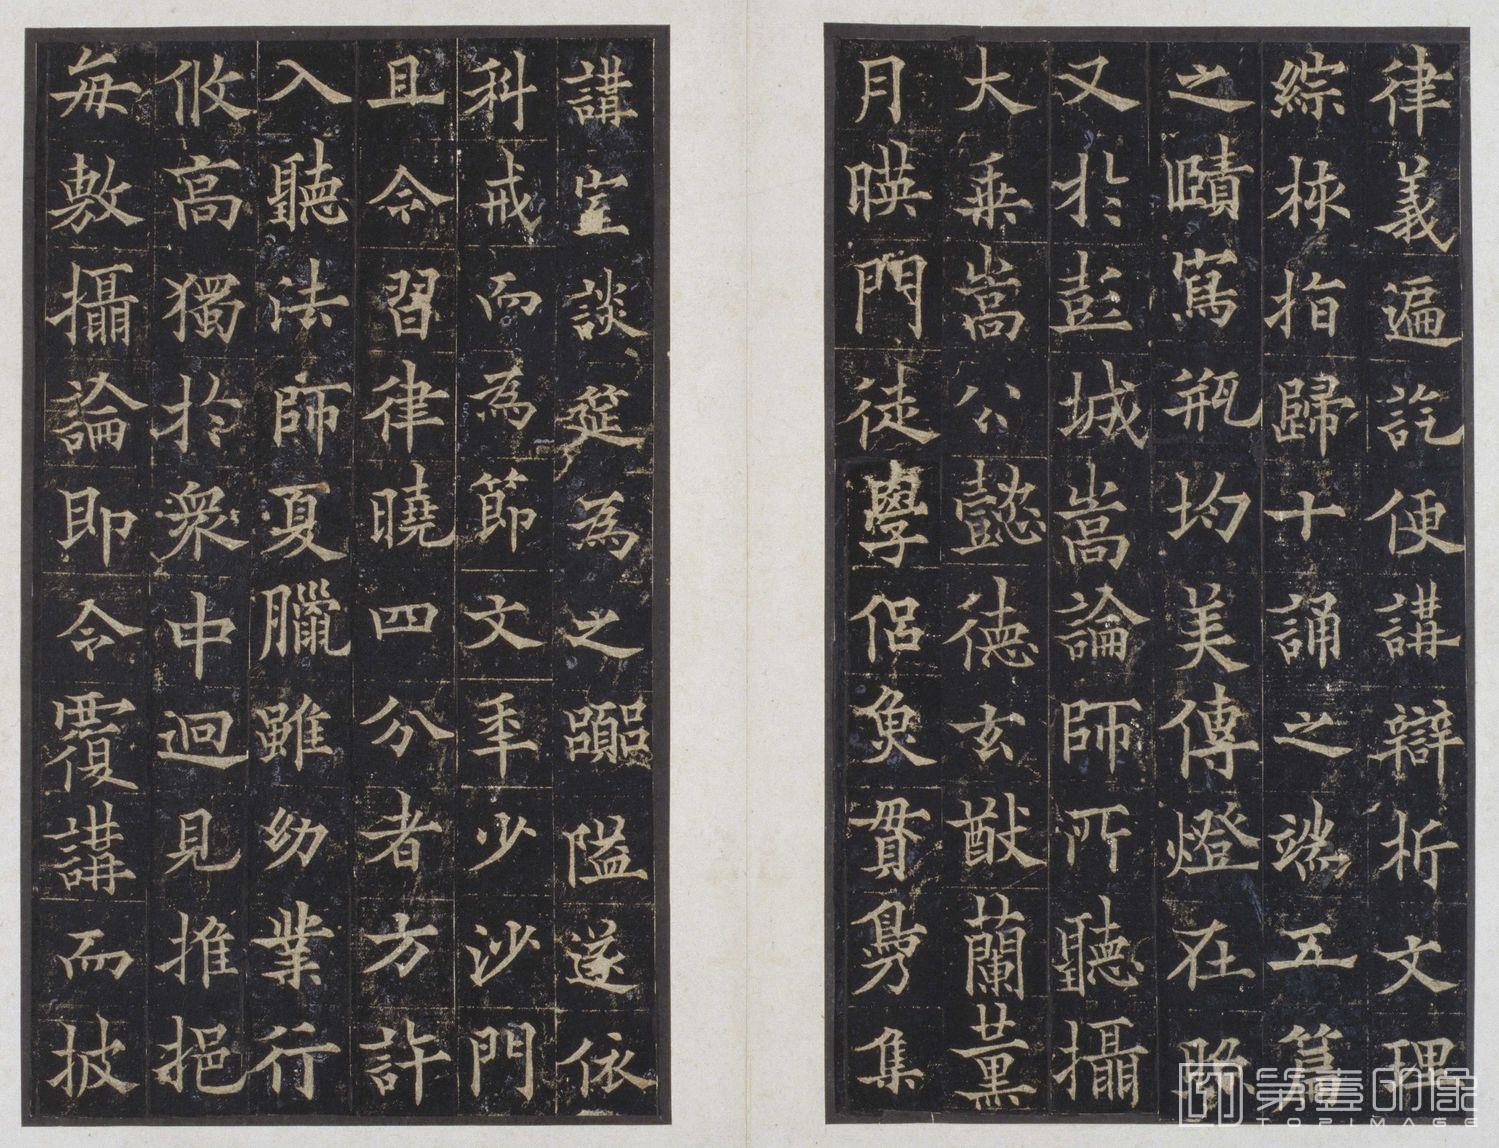 律義遍訖便講辯析文理
綜捒指歸十誦之端五篇
之賾篤瓶均美傳燈在
又於彭城嵩論師所聽攝
大乘嵩公懿德玄猷蘭薰
月暎門徒學侶魚貫鳧集
講室談筵為之嚻隘遂依
科戒而為節文年少沙門
且令習律曉四分者方許
入聽法師夏臘雖幼業行
攸高獨於衆中迥見推挹
每敷攝論即令覆講而披
第壹印像
TOPIMAGE